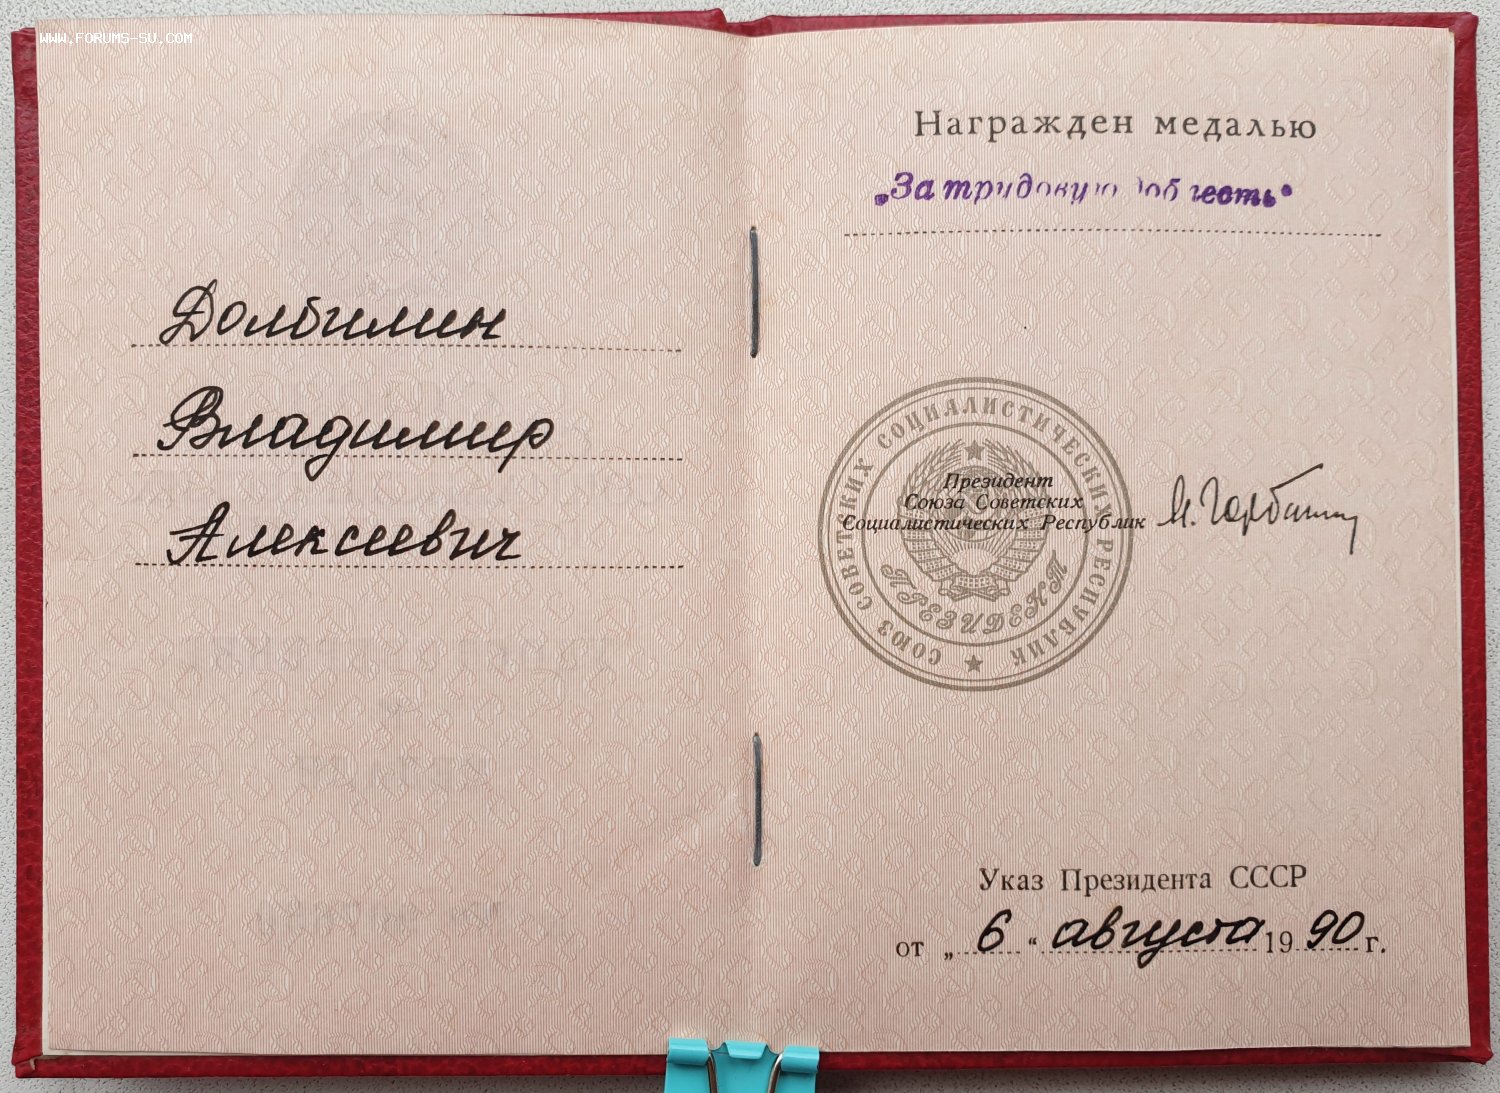 WWW.FORUMS-SU.COM
Долбилин
Владимир
Алексеевич
Награжден медалью
„За трудовую доблесть"
СОЮЗ СОВЕТСКИХ СОЦИАЛИСТИЧЕСКИХ РЕСПУБЛИК
ПРЕЗИДЕНТ
Президент
Союза Советских
Социалистических Республик
Указ Президента СССР
от „ 6 “ августа 1990 г.